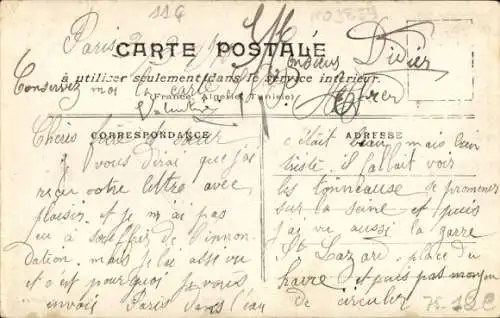 116
Paris
Monsieur Didier
CARTE POSTALE
à utiliser seulement dans le service intérieur.
(France, Algérie, Tunisie)
Conservez moi la carte
CORRESPONDANCE
ADRESSE
Chers
vous dirai que j'ai
reçu votre lettre avec
plaisir et je n'ai pas
eu à souffrir de l'innon
dation. mais je l'ai assé vu
et c'est pourquoi je vous
envois Paris dans l'eau
c'était beau, mais bien
triste il fallait voir
les tonneause se promener
sur la seine et puis
j'ai vu aussi la garre
St Lazare, place du
havre et puis pas moyen
de circuler